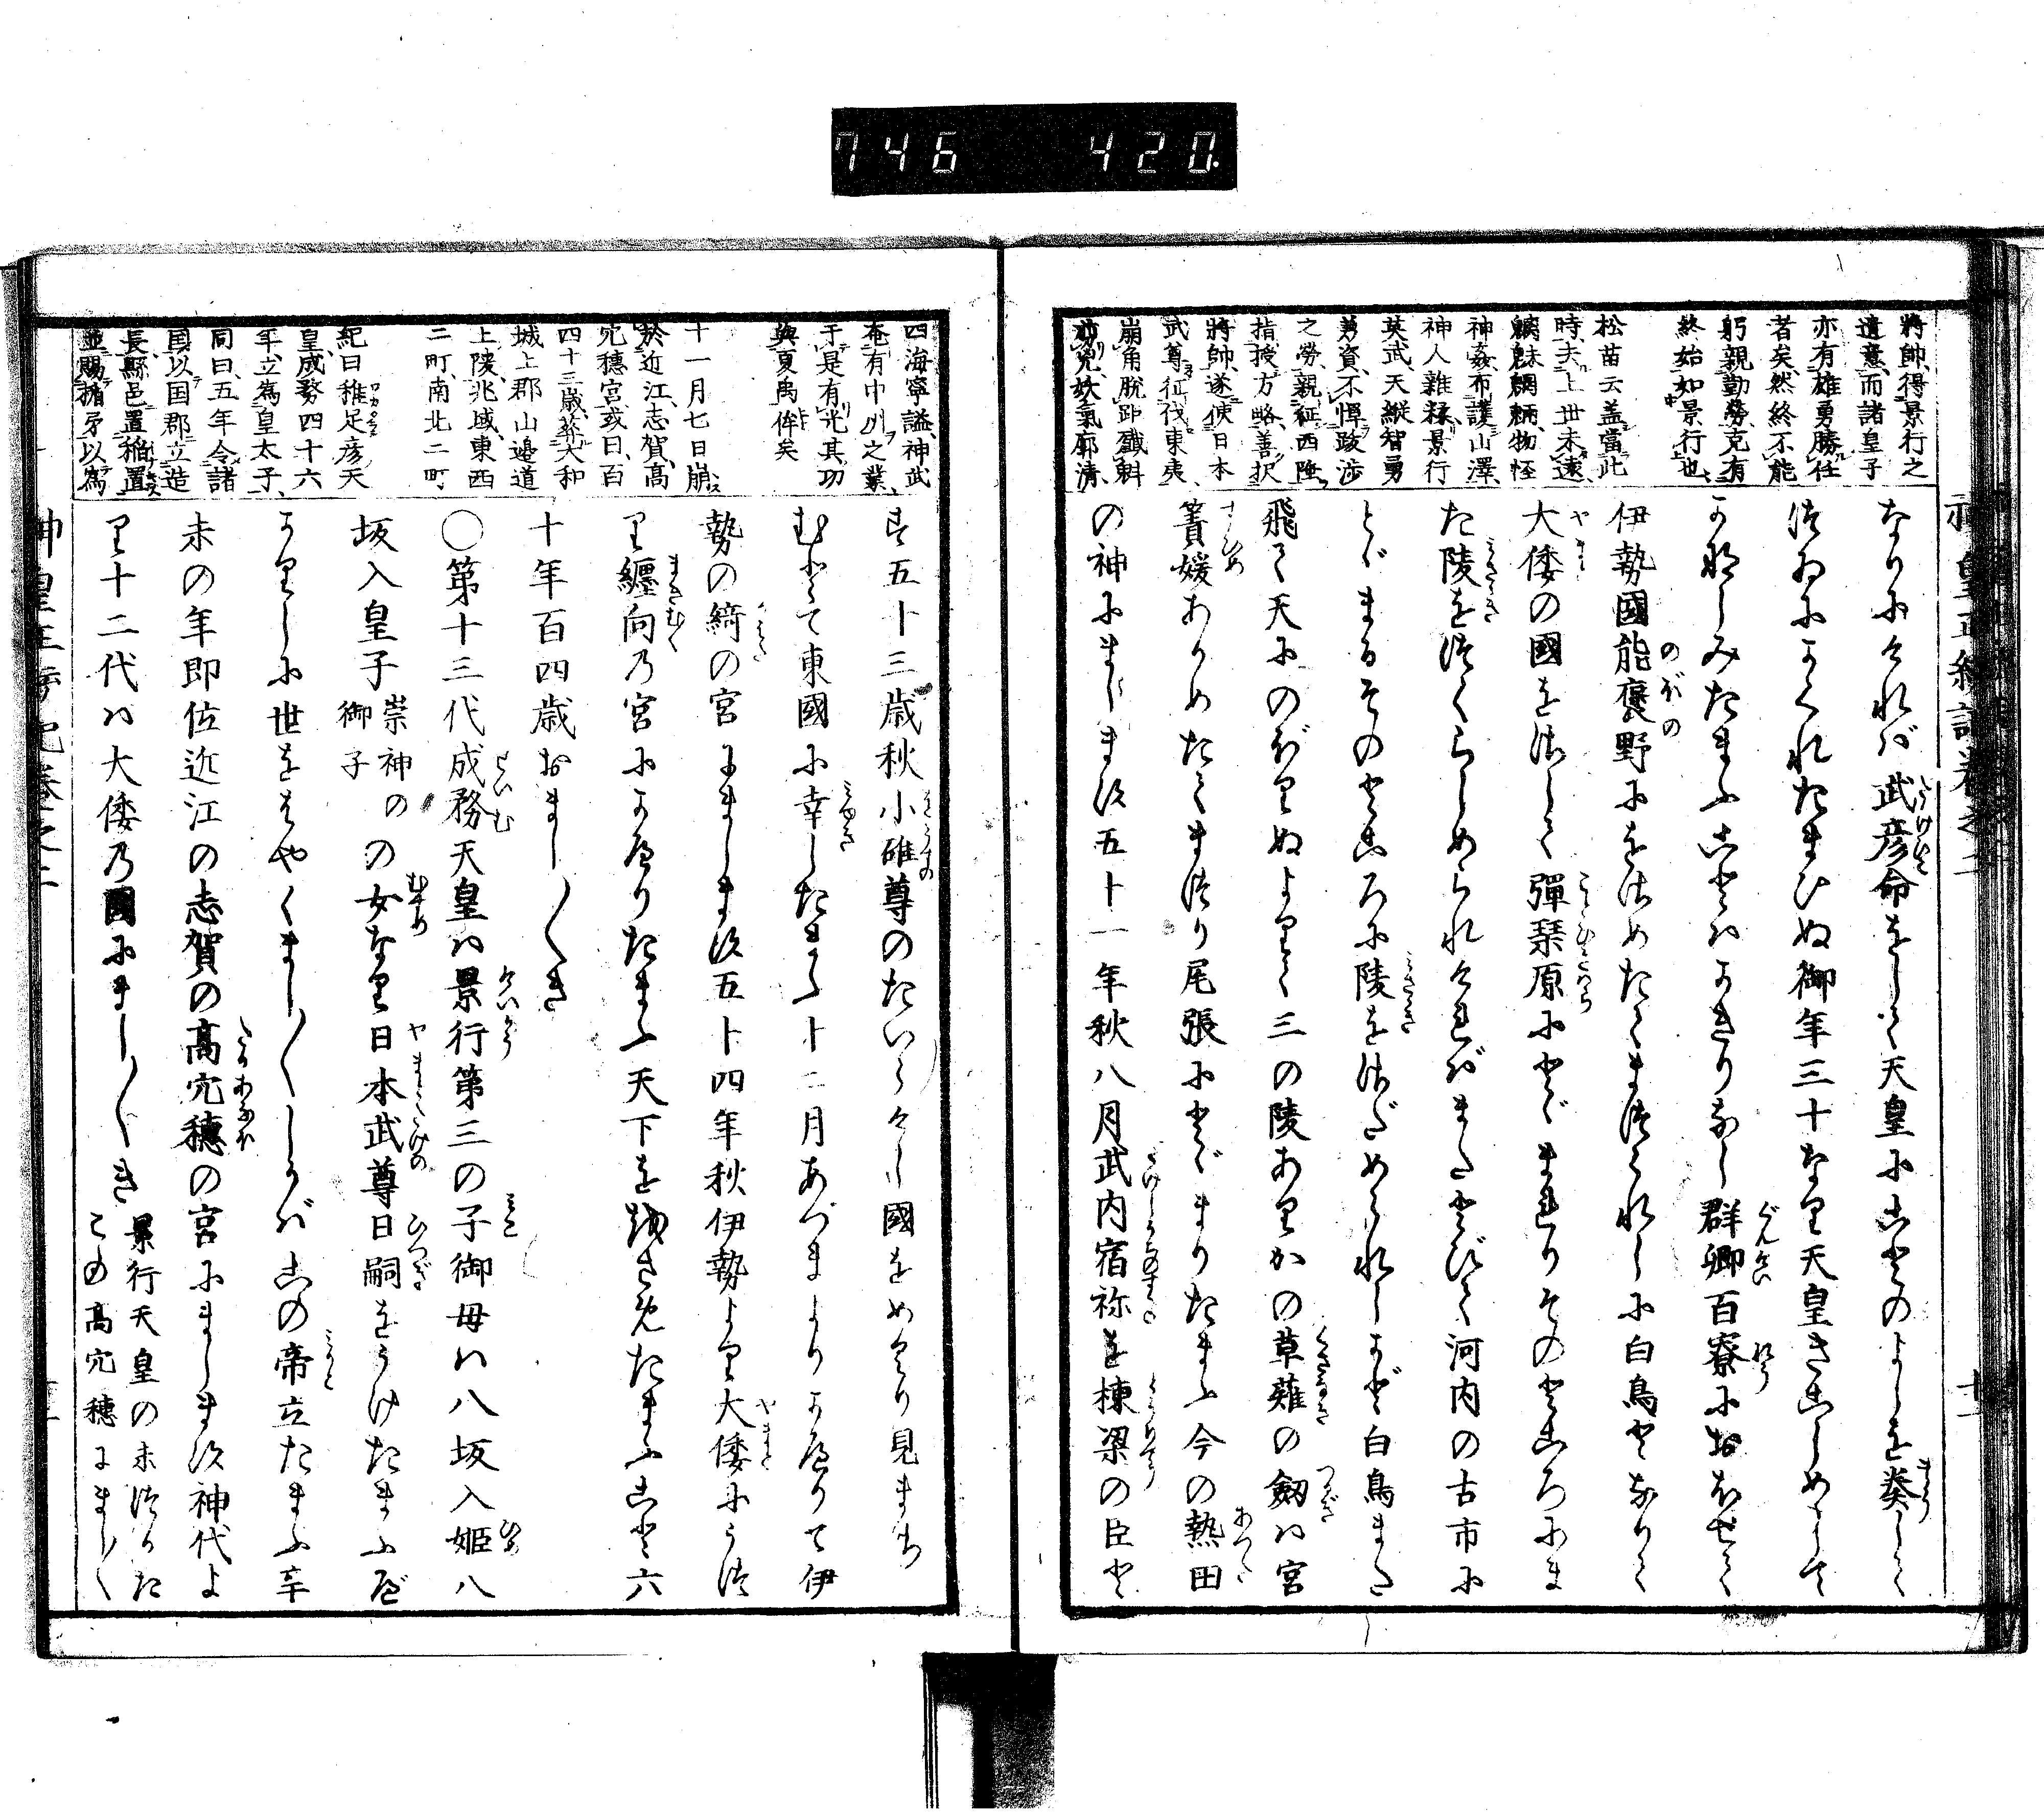 746 420
將帥、得景行之
遺意、而諸皇子
亦有雄勇勝任
者矣、然終不能
躬親勤勞、克有
終始如景行也
松苗云蓋當此
時、夫上世未遠、
魑魅魍魎、物怪
神姦、布護山澤、
神人雜糅、景行
英武、天縱智勇
兼資、不憚跋渉
之勞、親征西陲、
指授方略、善択
將帥、遂使日本
武尊征伐東夷、
崩角脱距殲斛
剪兇、妖氣廓清、
なりにければ武彦命をして天皇にことのよしを奏して
つゐにかくれたまひぬ御年三十なり天皇きこしめして
かなしみたまふことはかぎりなし群卿百寮におほせて
伊勢國能褒野にをさめたてまつられしに白鳥となりて
大倭の國をさして彈琹原にとゞまれりそのところにま
た陵をつくらしめられければまたとびて河内の古市に
とゞまるそのところに陵をさだめられしかど白鳥また
飛て天にのぼりぬよりて三の陵ありかの草薙の劔は宮
簀媛あがめたてまつり尾張にとゞまりたまふ今の熱田
の神にましまス五十一年秋八月武内宿祢を棟梁の臣と
四海寧謐、神武
奄有中州之業、
于是有光、其功
與夏禹侔矣
十一月七日崩
於近江、志賀、高
穴穗宮或曰、百
四十三歳葬大和
城上郡山邉道
上陵、兆域、東西
二町、南北二町
紀曰稚足彦天
皇、成務四十六
年、立爲皇太子、
同曰、五年令諸
国以国郡立造
長、縣邑置稲置
並賜楯矛以爲
す五十三歳秋小碓尊のたいらけし國をめぐり見ませち
むとて東國に幸したまふ十二月あづまよりかへりて伊
勢の綺の宮にましまス五十四年秋、伊勢より大倭にうつ
り纏向乃宮にかへりたまふ天下を治させたまふこと六
十年百四歳おまし〱き
〇第十三代成務天皇は景行第三の子御母は八坂入姫八
坂入皇子崇神の御子の女なり日本武尊日嗣をうけたまふべ
かりしに世をはやくまし〱しかばこの帝立たまふ辛
未の年即位近江の志賀の高穴穗の宮にましまス神代よ
り十二代は大倭乃國にまし〱き景行天皇の末つかたこの高穴穗にまし〱